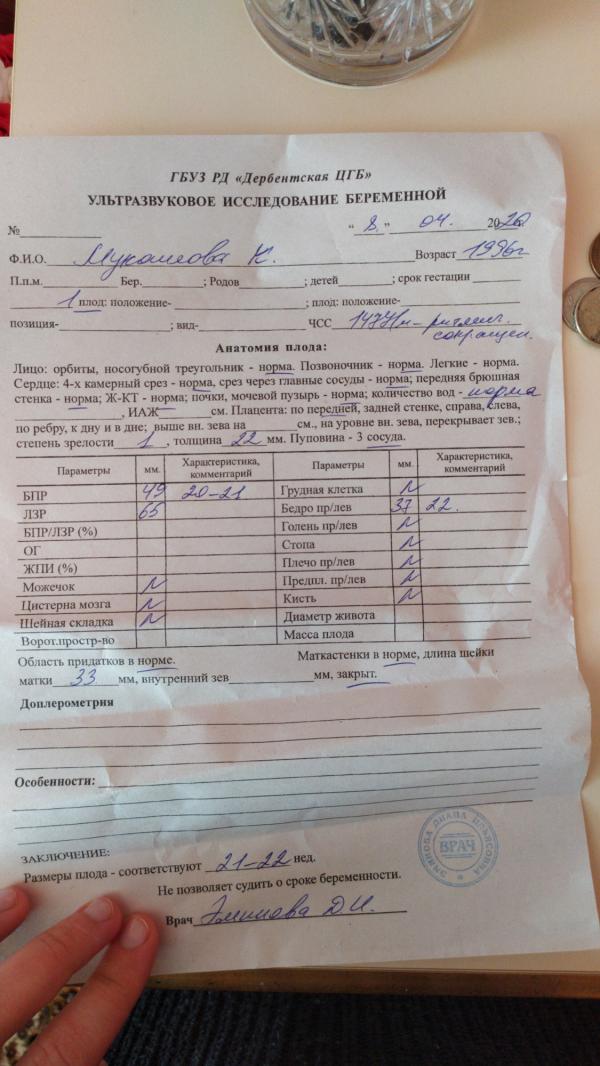 ГБУЗ РД «Дербентская ЦГБ»
УЛЬТРАЗВУКОВОЕ ИССЛЕДОВАНИЕ БЕРЕМЕННОЙ
№ “ 8 ” 04. 2020
Ф.И.О. К. Возраст 1996г
П.п.м. Бер. ; Родов ; детей ; срок гестации
1 плод: положение- ; плод: положение-
позиция- ; вид- ЧСС 147 1/м – ритмич. сокращен.
Анатомия плода:
Лицо: орбиты, носогубной треугольник - норма. Позвоночник - норма. Легкие - норма.
Сердце: 4-х камерный срез - норма, срез через главные сосуды - норма; передняя брюшная
стенка - норма; Ж-КТ - норма; почки, мочевой пузырь - норма; количество вод - норма
, ИАЖ — см. Плацента: по передней, задней стенке, справа, слева,
по ребру, к дну и в дне; выше вн. зева на см., на уровне вн. зева, перекрывает зев.;
степень зрелости 1 , толщина 22 мм. Пуповина - 3 сосуда.
Параметры мм. Характеристика, комментарий Параметры мм. Характеристика, комментарий
БПР 49 20-21 Грудная клетка N
ЛЗР 65 Бедро пр/лев 37 22.
БПР/ЛЗР (%) Голень пр/лев N
ОГ Стопа N
ЖПИ (%) Плечо пр/лев N
Можечок N Предпл. пр/лев N
Цистерна мозга N Кисть N
Шейная складка N Диаметр живота
Ворот.простр-во Масса плода
Область придатков в норме. Маткастенки в норме, длина шейки
матки 33 мм, внутренний зев мм, закрыт.
Доплерометрия
Особенности:
ЗАКЛЮЧЕНИЕ:
Размеры плода - соответствуют 21-22 нед.
Не позволяет судить о сроке беременности.
Врач Эминова Д.И.
ЭМИНОВА ДИАНА ИЛЬЯСОВНА
ВРАЧ